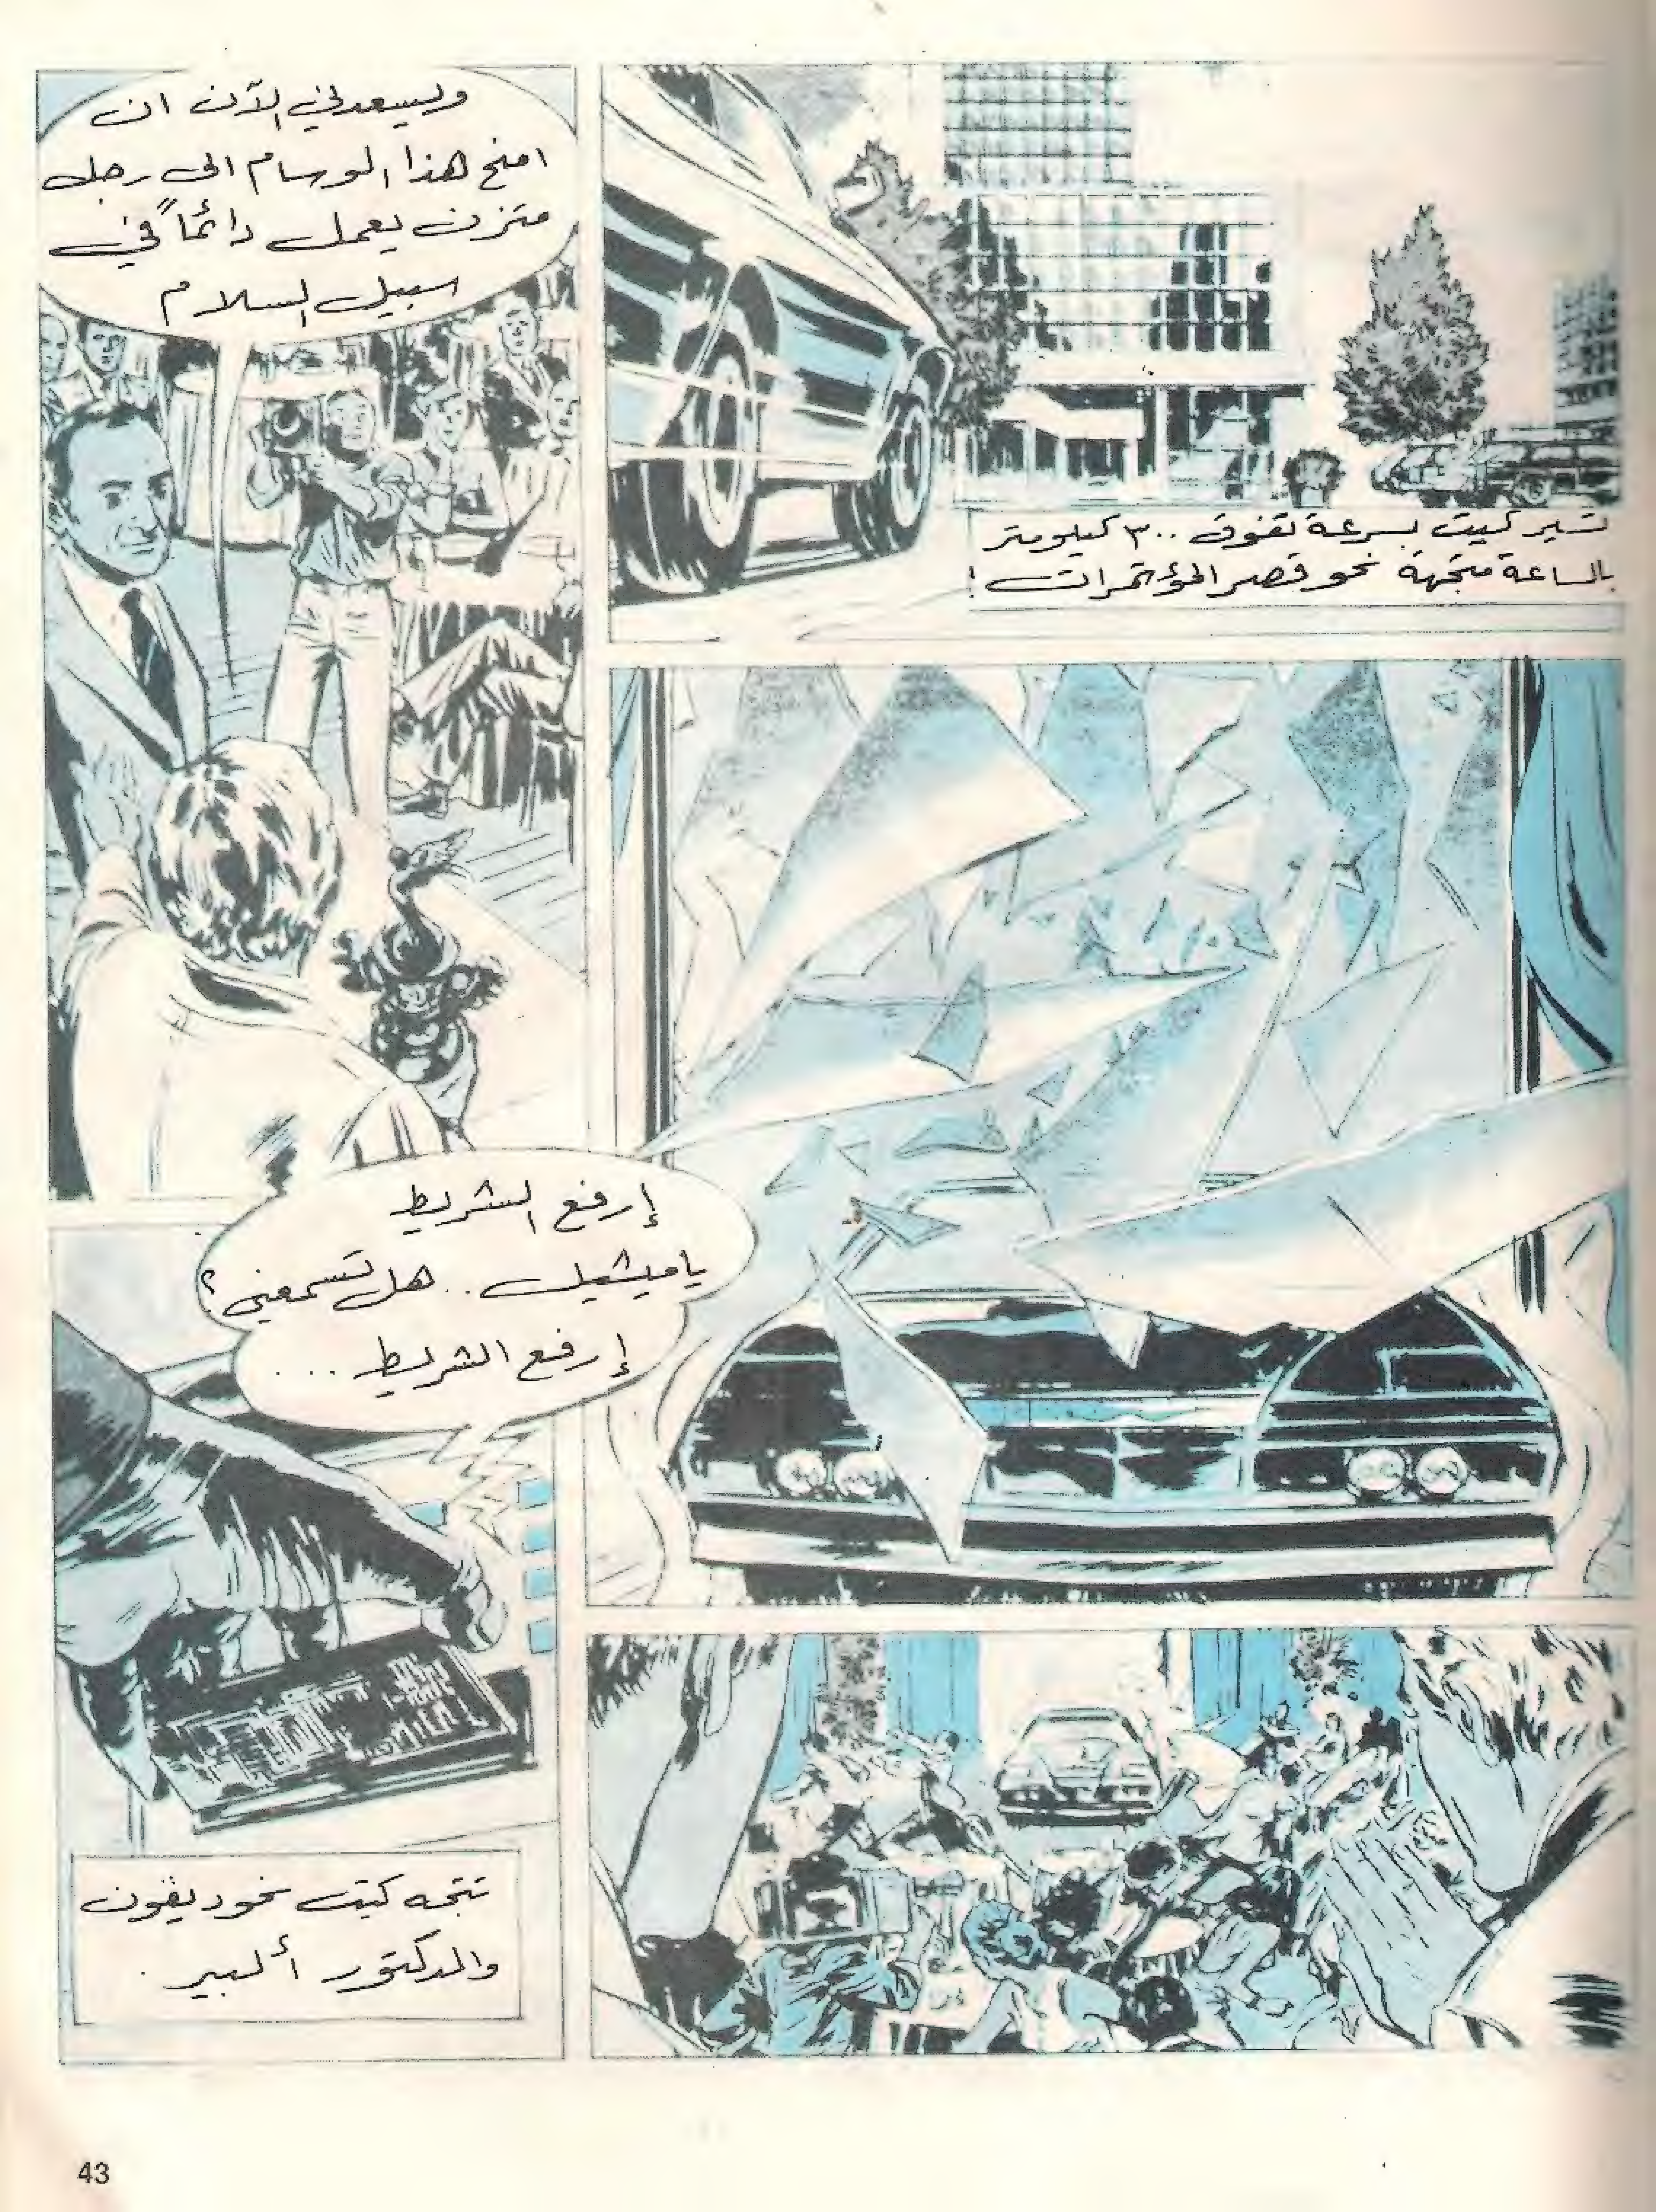 تسير كيت بسرعة تفوق ٣٠٠ كيلومتر
بالساعة متجهة نحو قصر المؤتمرات !
وليسعدني الآن ان
امنح هذا الوسام الى رجل
متزن يعمل دائماً في
سبيل السلام
إرفع الشريط
ياميشيل .. هل تسمعني ؟
إرفع الشريط ...
تتجه كيت نحو ديفون
والدكتور ألبير .
43